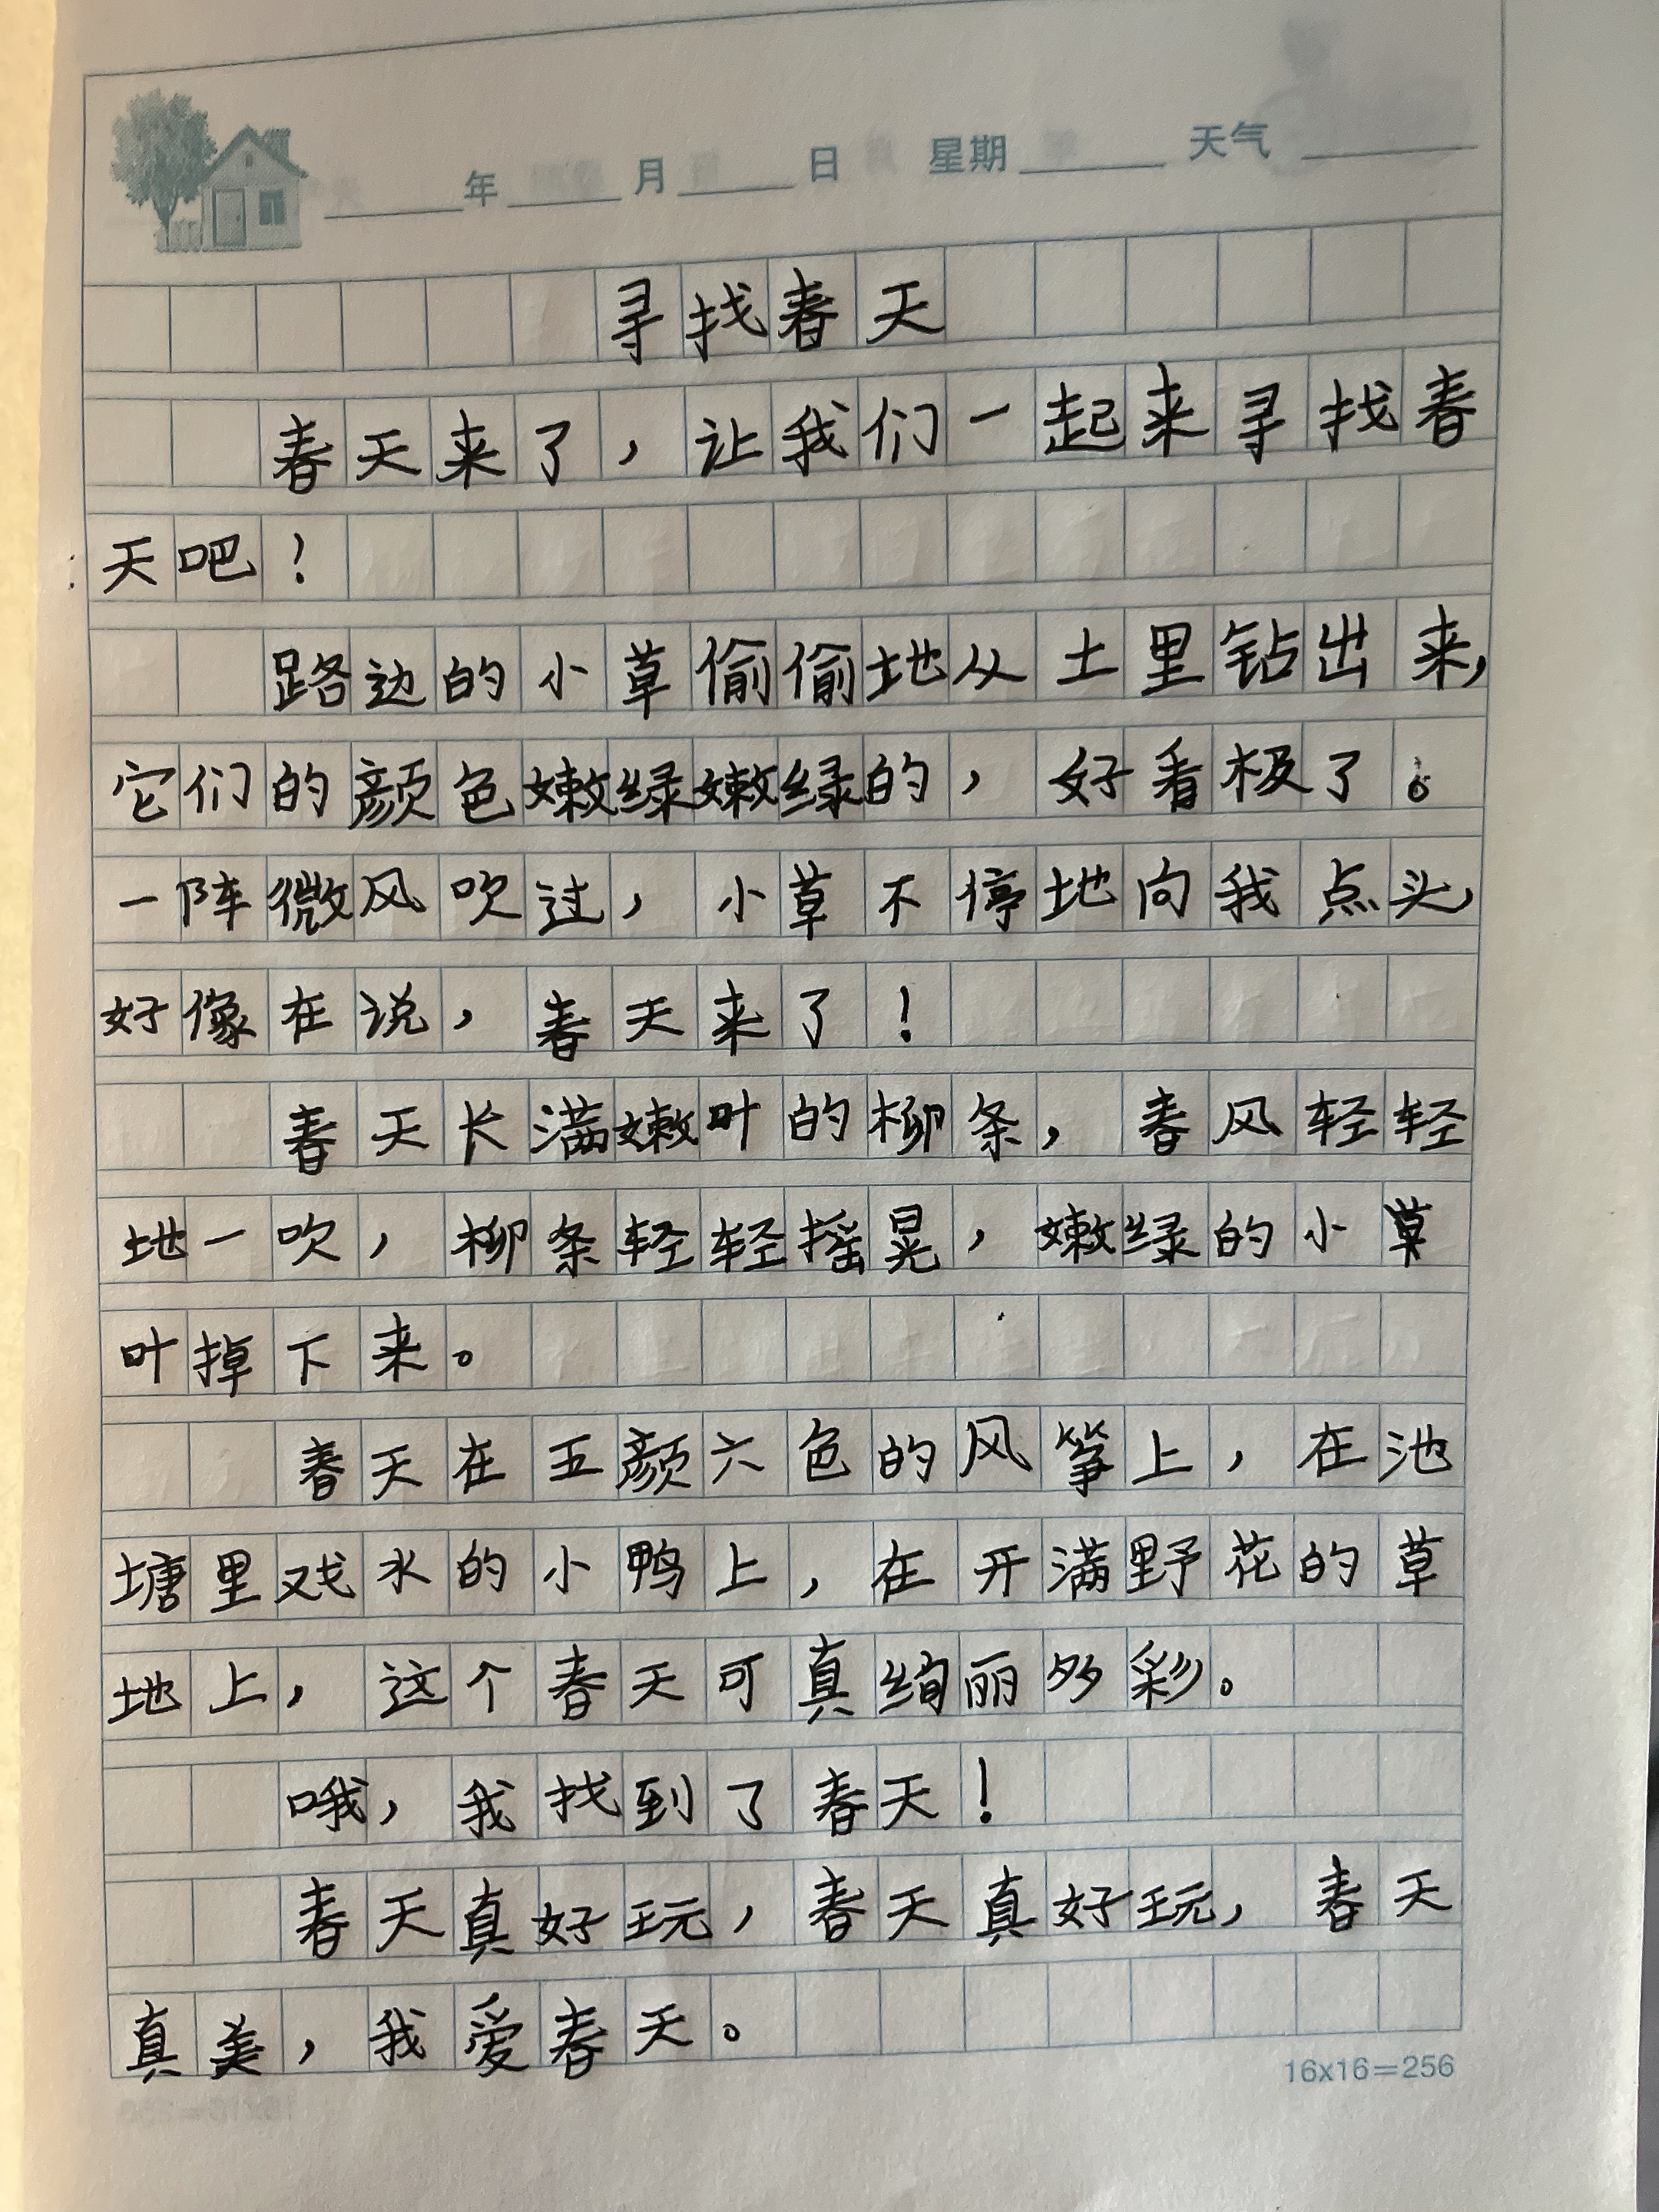 年 月 日 星期 天气
寻找春天
春天来了，让我们一起来寻找春
天吧！
路边的小草偷偷地从土里钻出来，
它们的颜色嫩绿嫩绿的，好看极了。
一阵微风吹过，小草不停地向我点头，
好像在说，春天来了！
春天长满嫩叶的柳条，春风轻轻
地一吹，柳条轻轻摇晃，嫩绿的小草
叶掉下来。
春天在五颜六色的风筝上，在池
塘里戏水的小鸭上，在开满野花的草
地上，这个春天可真绚丽多彩。
哦，我找到了春天！
春天真好玩，春天真好玩，春天
真美，我爱春天。
16x16=256